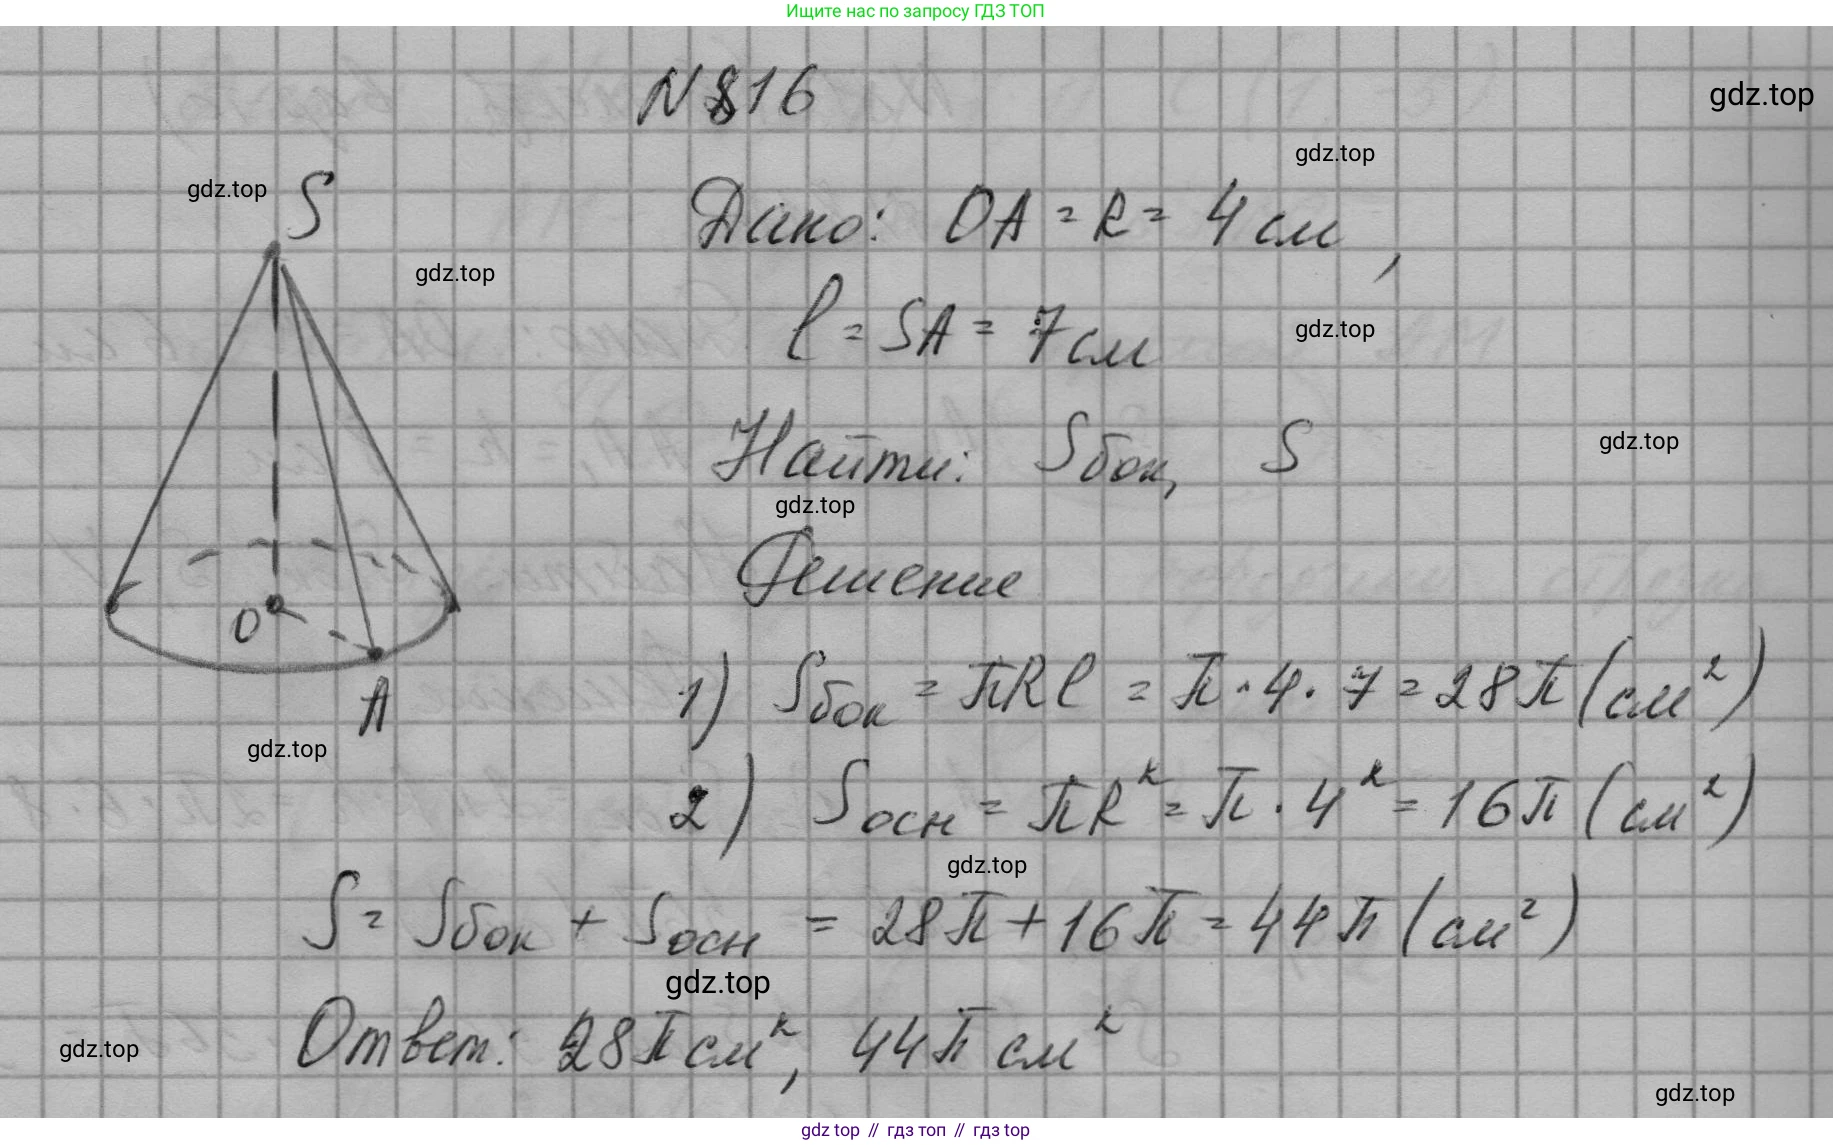 Ищите нас по запросу ГДЗ ТОП
N 816
gdz.top
gdz.top
gdz.top
S
Дано: OA = R = 4 см,
gdz.top
l = SA = 7 см
gdz.top
Найти: Sбок, S
gdz.top
gdz.top
Решение
O
A
1) Sбок = πRl = π · 4 · 7 = 28π (см²)
gdz.top
2) Sосн = πR² = π · 4² = 16π (см²)
gdz.top
S = Sбок + Sосн = 28π + 16π = 44π (см²)
gdz.top
Ответ: 28π см², 44π см²
gdz.top
gdz.top
gdz.top // гдз топ // гдз top